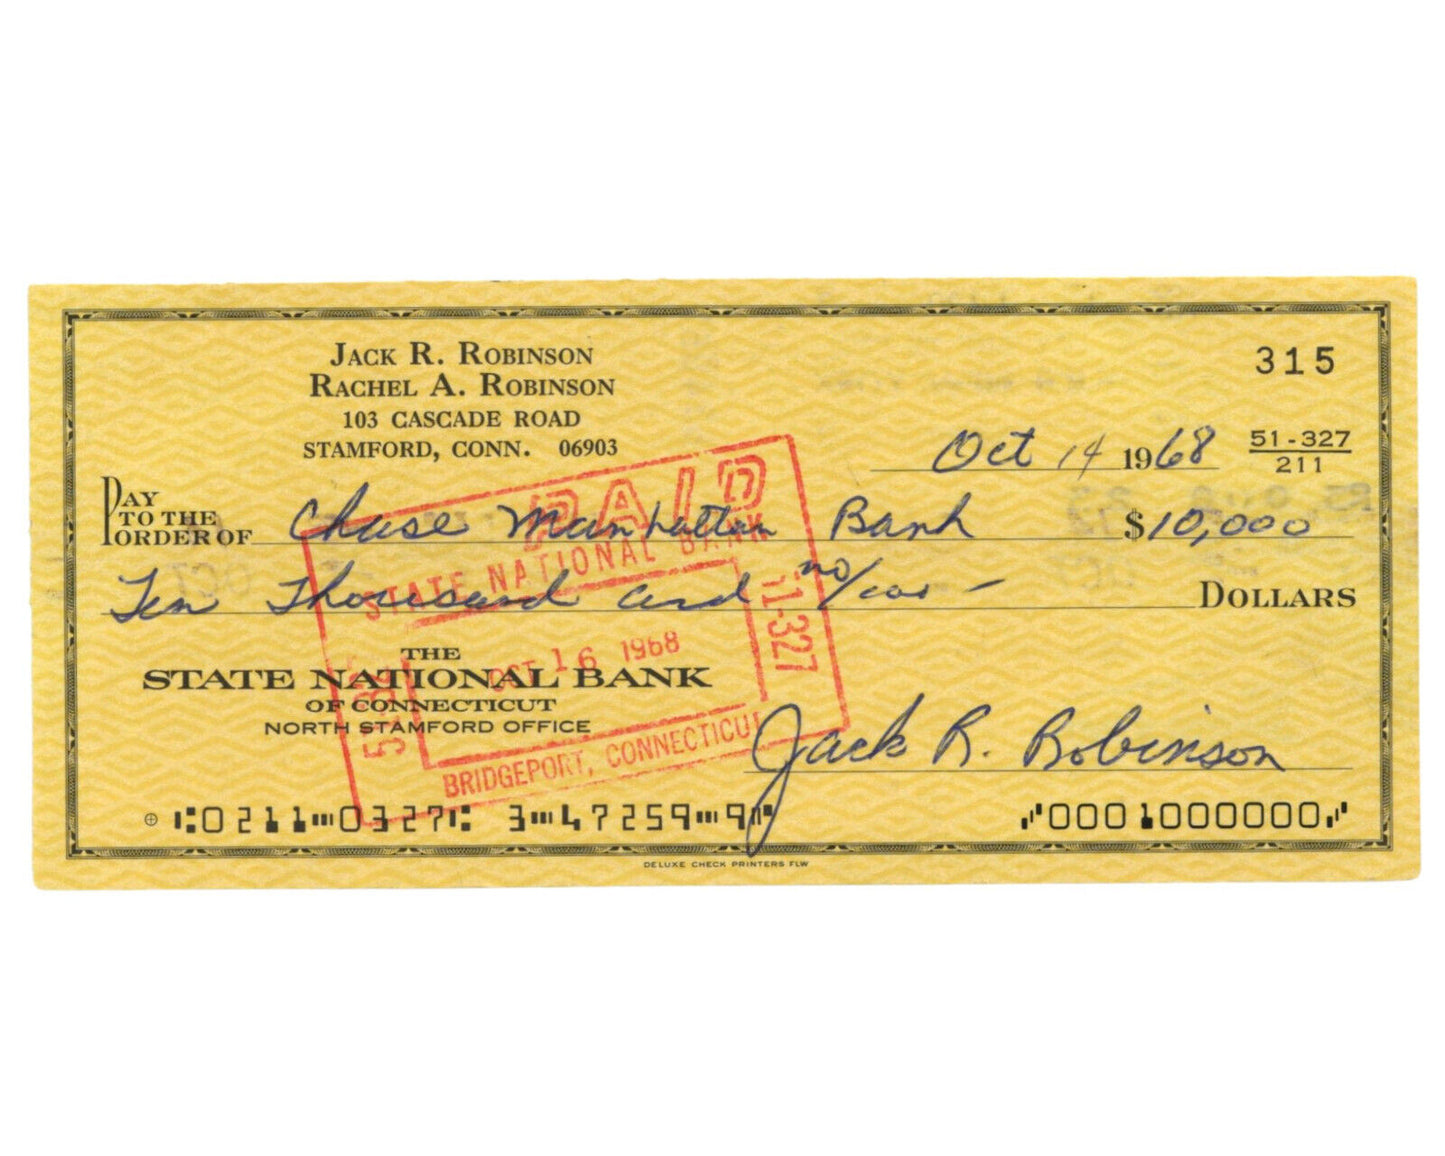 JACK R. ROBINSON
RACHEL A. ROBINSON
103 CASCADE ROAD
STAMFORD, CONN. 06903
315
Oct 14 1968
51-327
211
PAY TO THE ORDER OF Chase Manhattan Bank $10,000
Ten Thousand and no/100 — DOLLARS
PAID
STATE NATIONAL BANK
OCT 16 1968
BRIDGEPORT, CONNECTICUT
THE
STATE NATIONAL BANK
OF CONNECTICUT
NORTH STAMFORD OFFICE
Jack R. Robinson
⑆0211⑉0327⑆ 3⑉47259⑉9⑈ ⑇0001000000⑇
DELUXE CHECK PRINTERS FLW